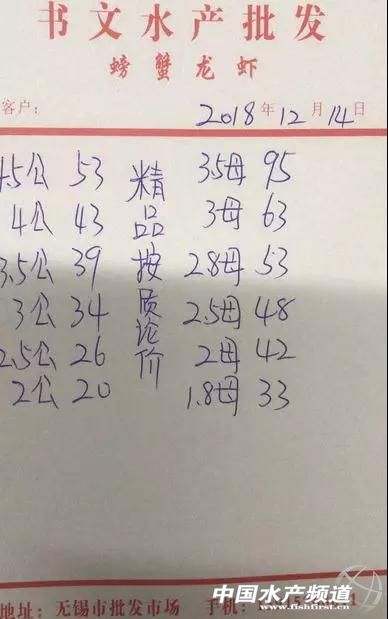 书文水产批发
螃蟹龙虾
客户:
2018年12月14日
4.5公 53
4公 43
3.5公 39
3公 34
2.5公 26
2公 20
精品按质论价
3.5母 95
3母 63
2.8母 53
2.5母 48
2母 42
1.8母 33
地址: 无锡市批发市场 手机:
中国水产频道
www.fishfirst.cn